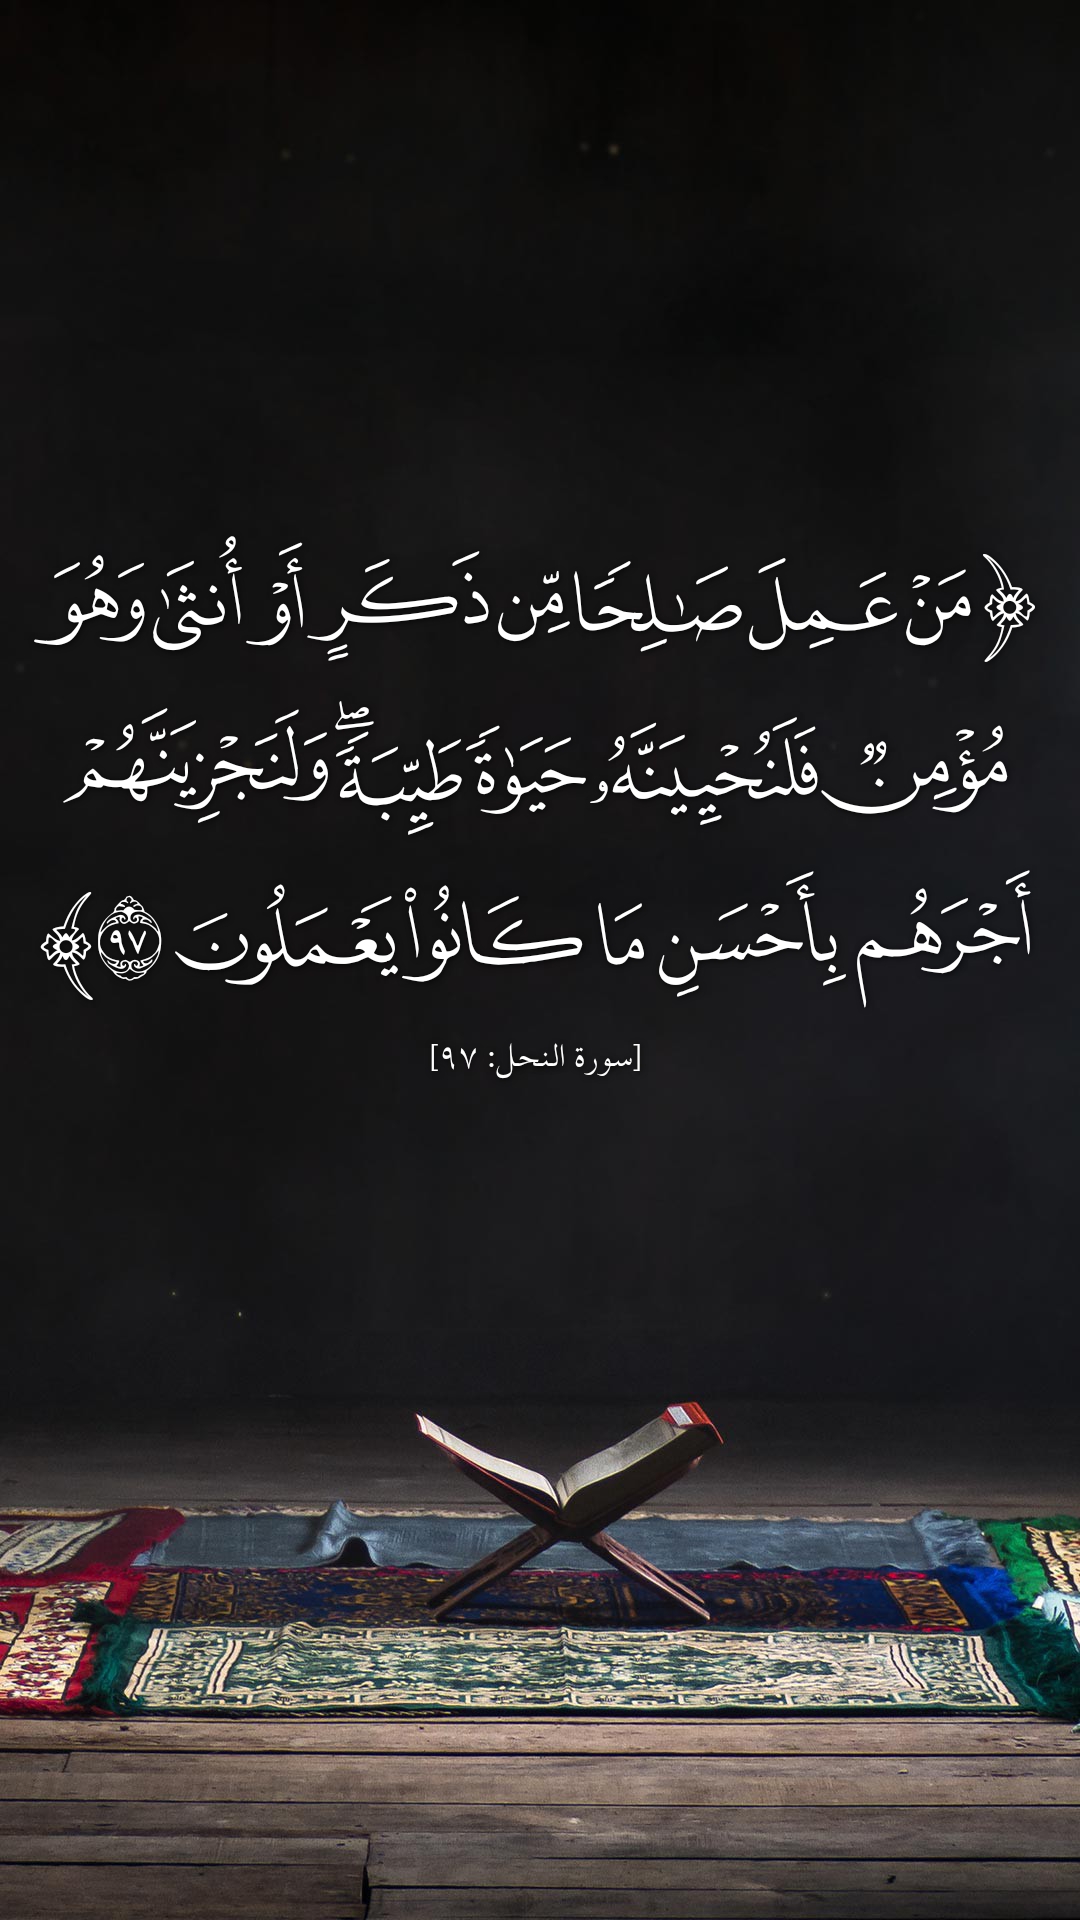 ﴿ مَنۡ عَمِلَ صَٰلِحٗا مِّن ذَكَرٍ أَوۡ أُنثَىٰ وَهُوَ
مُؤۡمِنٞ فَلَنُحۡيِيَنَّهُۥ حَيَوٰةٗ طَيِّبَةٗۖ وَلَنَجۡزِيَنَّهُمۡ
أَجۡرَهُم بِأَحۡسَنِ مَا كَانُواْ يَعۡمَلُونَ ٩٧ ﴾
[سورة النحل: ٩٧]